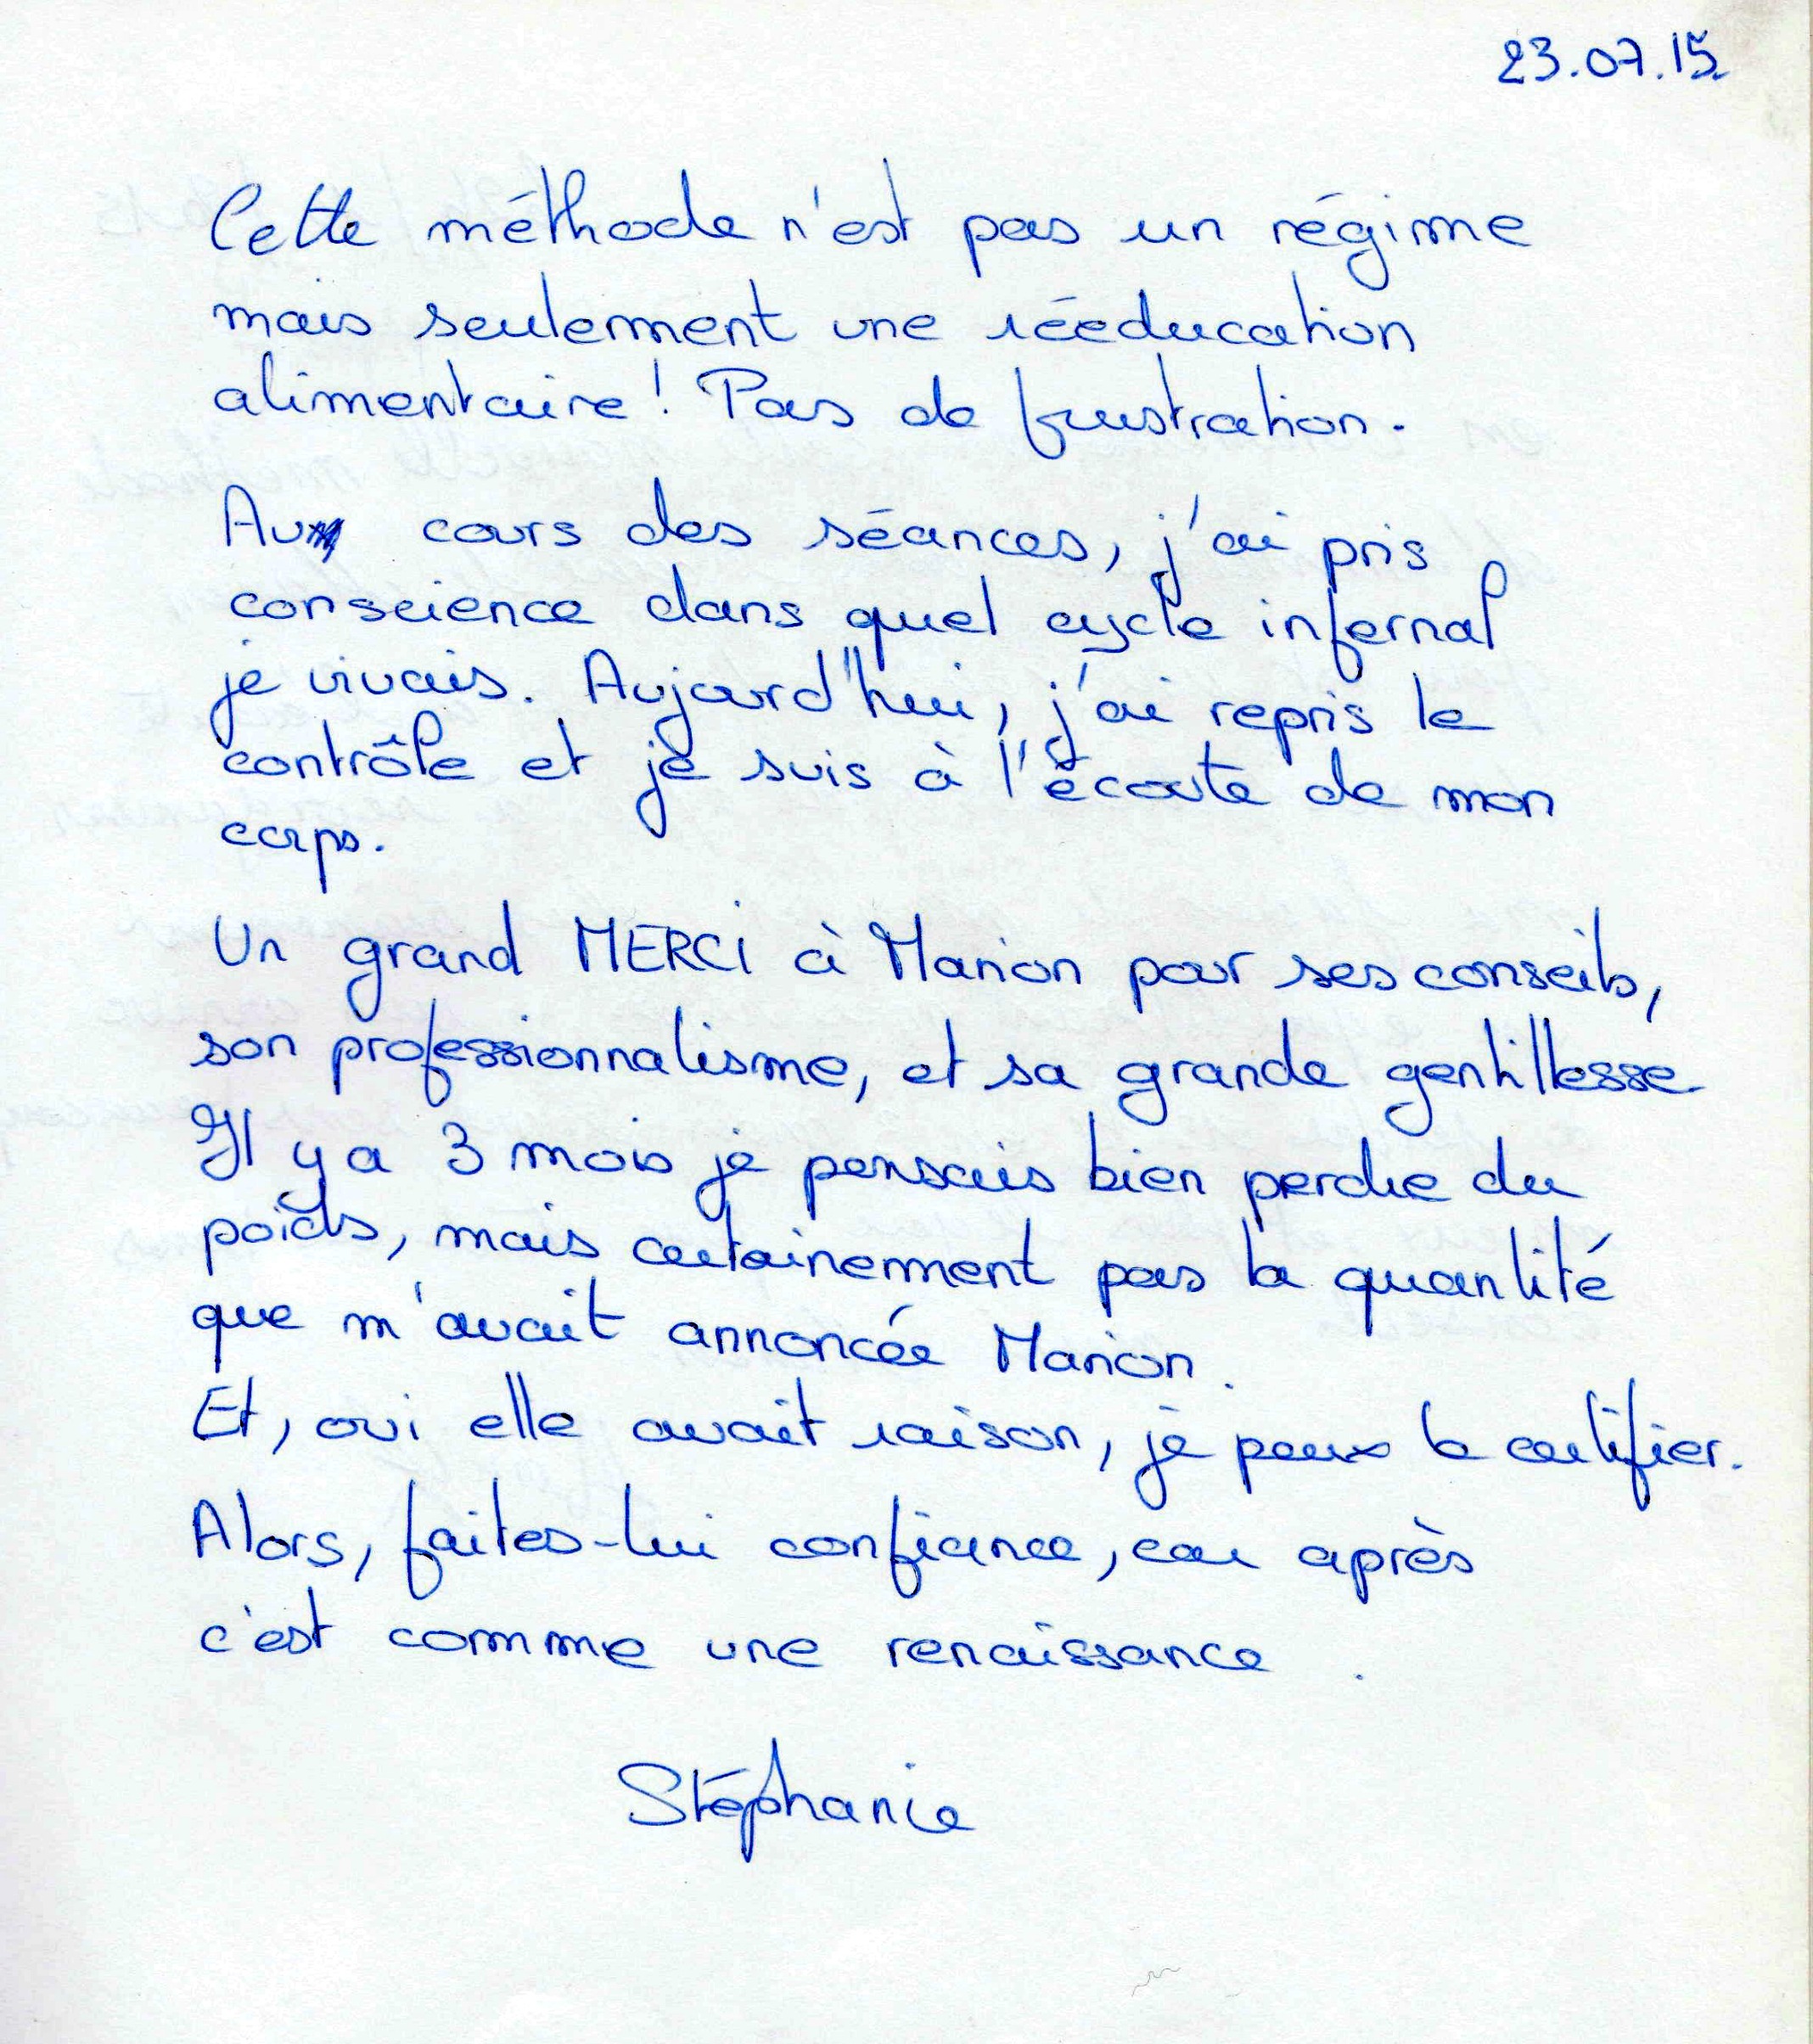 23.07.15
Cette méthode n'est pas un régime
mais seulement une rééducation
alimentaire! Pas de frustration.
Au cours des séances, j'ai pris
conscience dans quel cycle infernal
je vivais. Aujourd'hui, j'ai repris le
contrôle et je suis à l'écoute de mon
corps.
Un grand MERCI à Marion pour ses conseils,
son professionnalisme, et sa grande gentillesse
Il y a 3 mois je pensais bien perdre du
poids, mais certainement pas la quantité
que m'avait annoncée Marion.
Et, oui elle avait raison, je peux le certifier.
Alors, faites-lui confiance, car après
c'est comme une renaissance.
Stéphanie